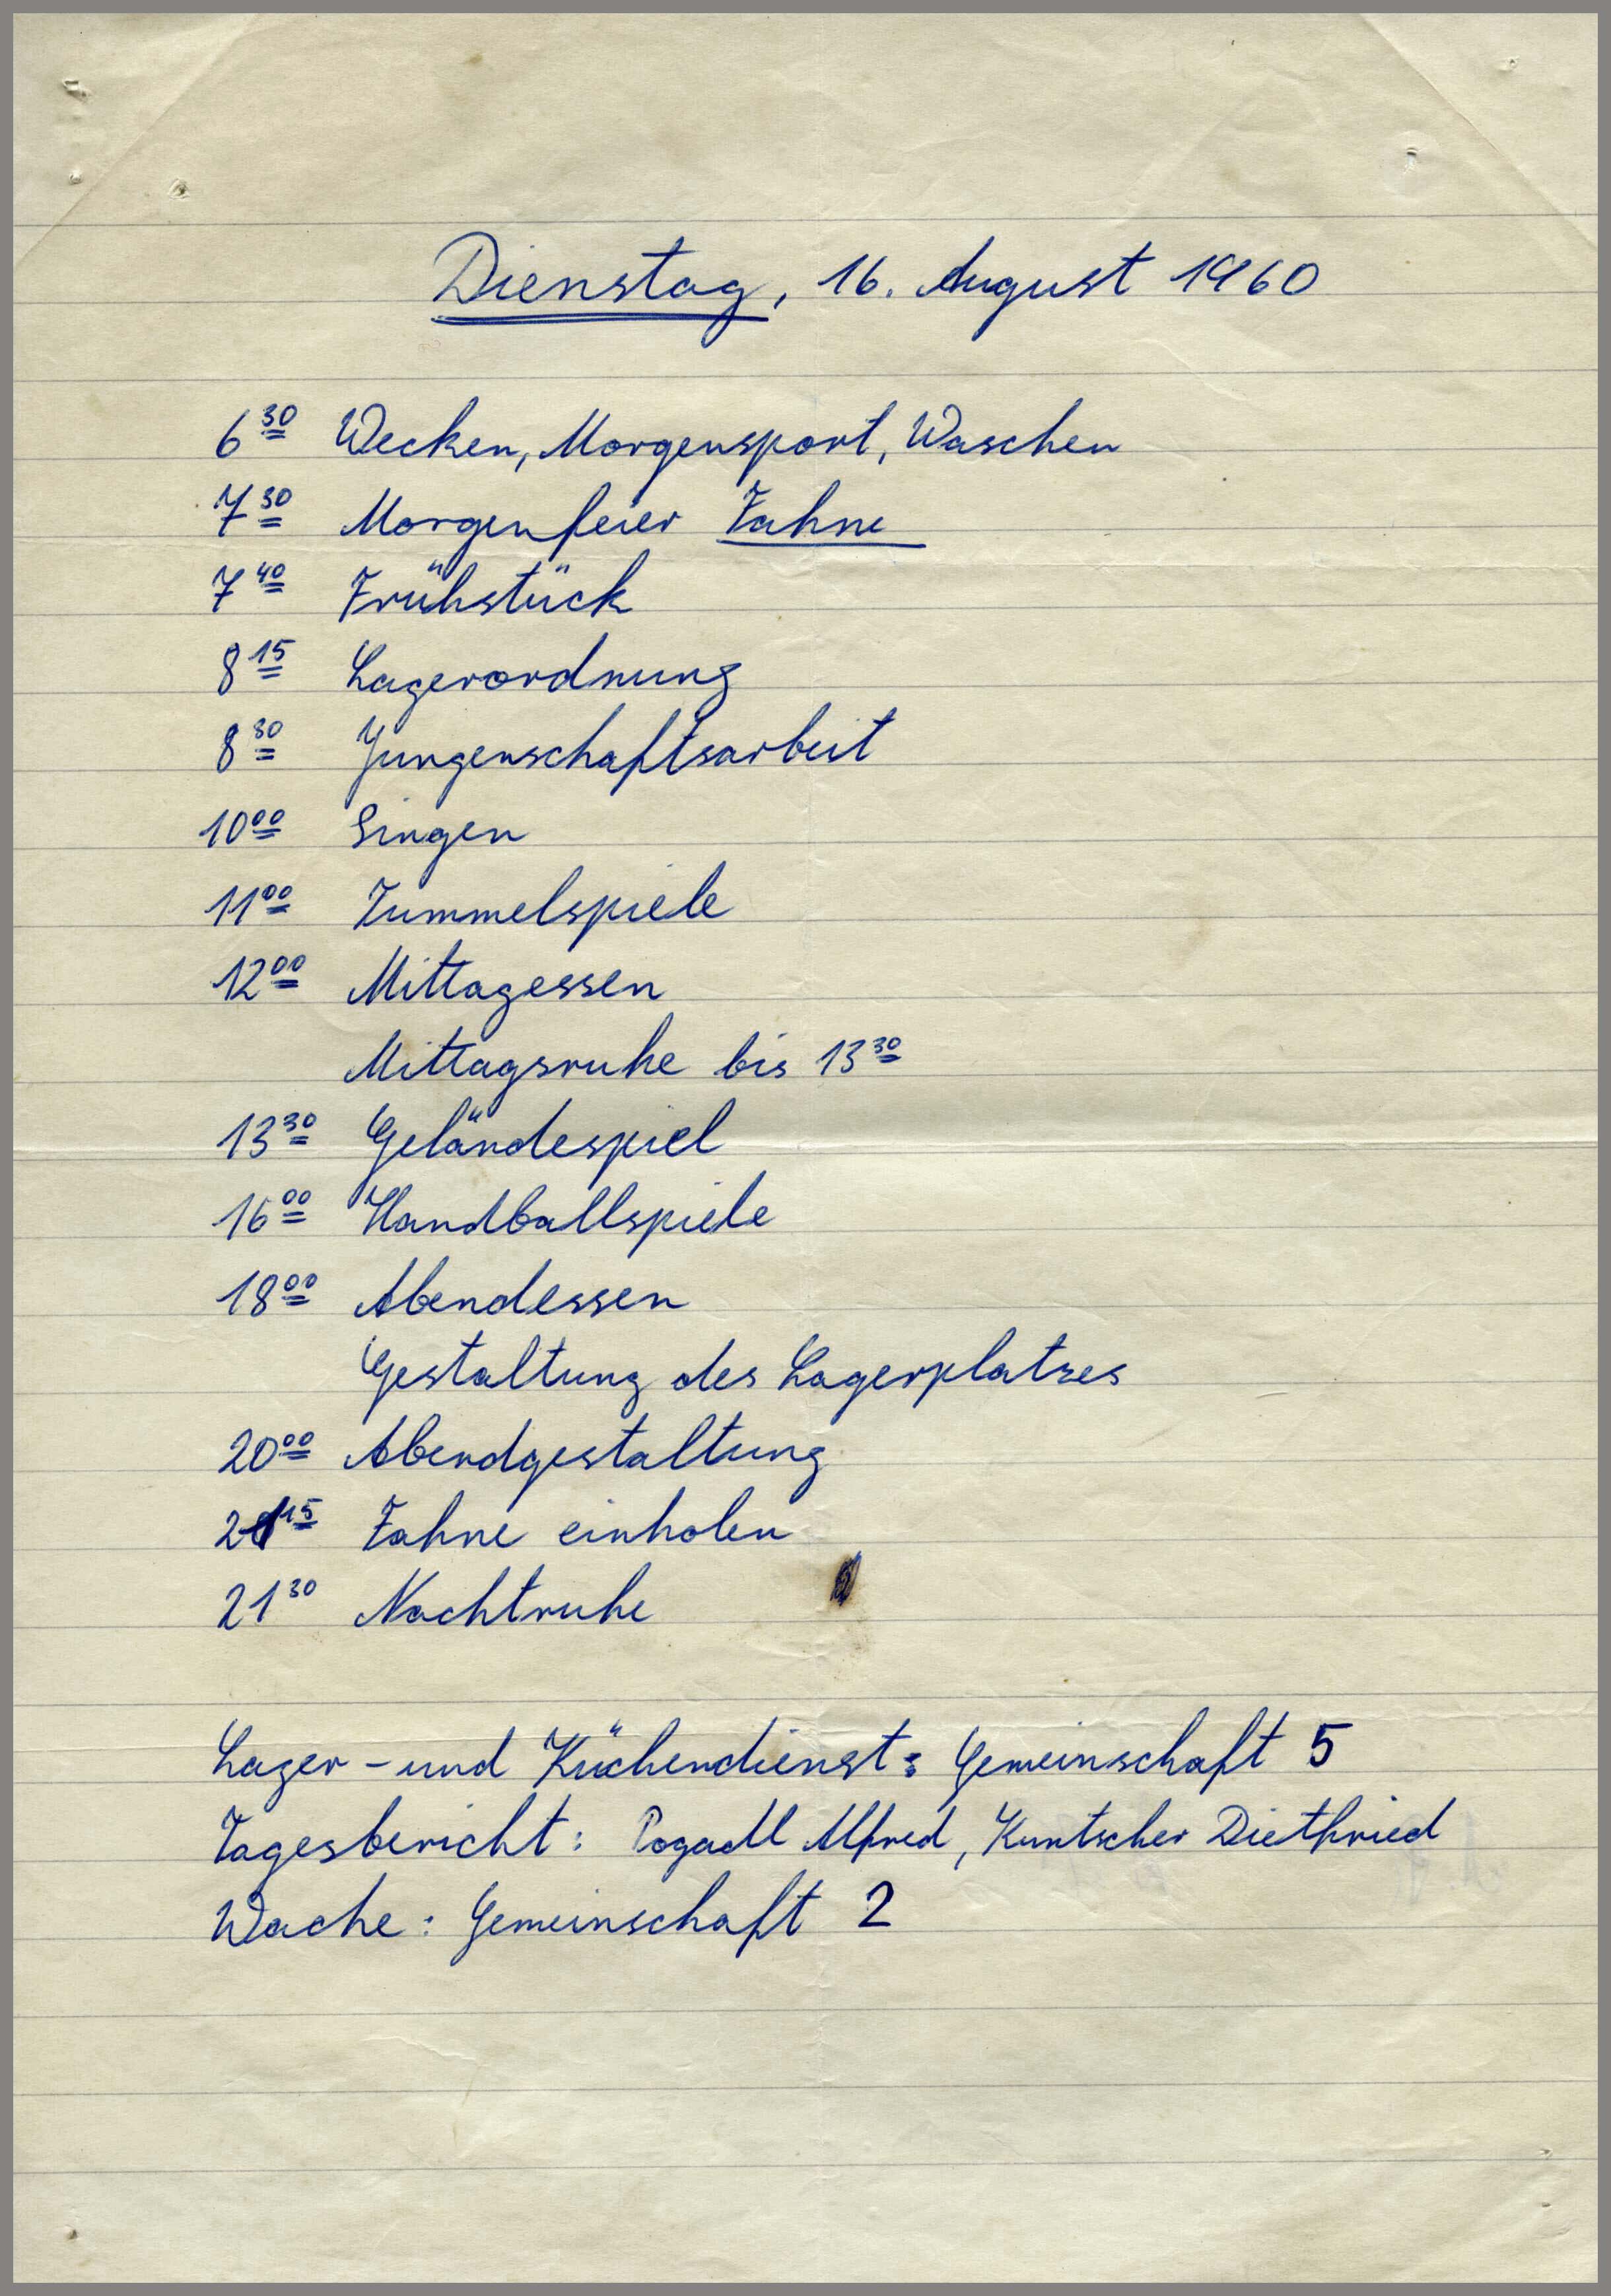 Dienstag, 16. August 1960
6 30 Wecken, Morgensport, Waschen
7 30 Morgenfeier Fahne
7 40 Frühstück
8 15 Lagerordnung
8 30 Jungenschaftsarbeit
10 00 Singen
11 00 Tummelspiele
12 00 Mittagessen
Mittagsruhe bis 13 30
13 30 Geländespiel
16 00 Handballspiele
18 00 Abendessen
Gestaltung des Lagerplatzes
20 00 Abendgestaltung
21 15 Fahne einholen
21 30 Nachtruhe
Lager- und Küchendienst: Gemeinschaft 5
Tagesbericht: Pogadl Alfred, Kuntscher Dietfried
Wache: Gemeinschaft 2